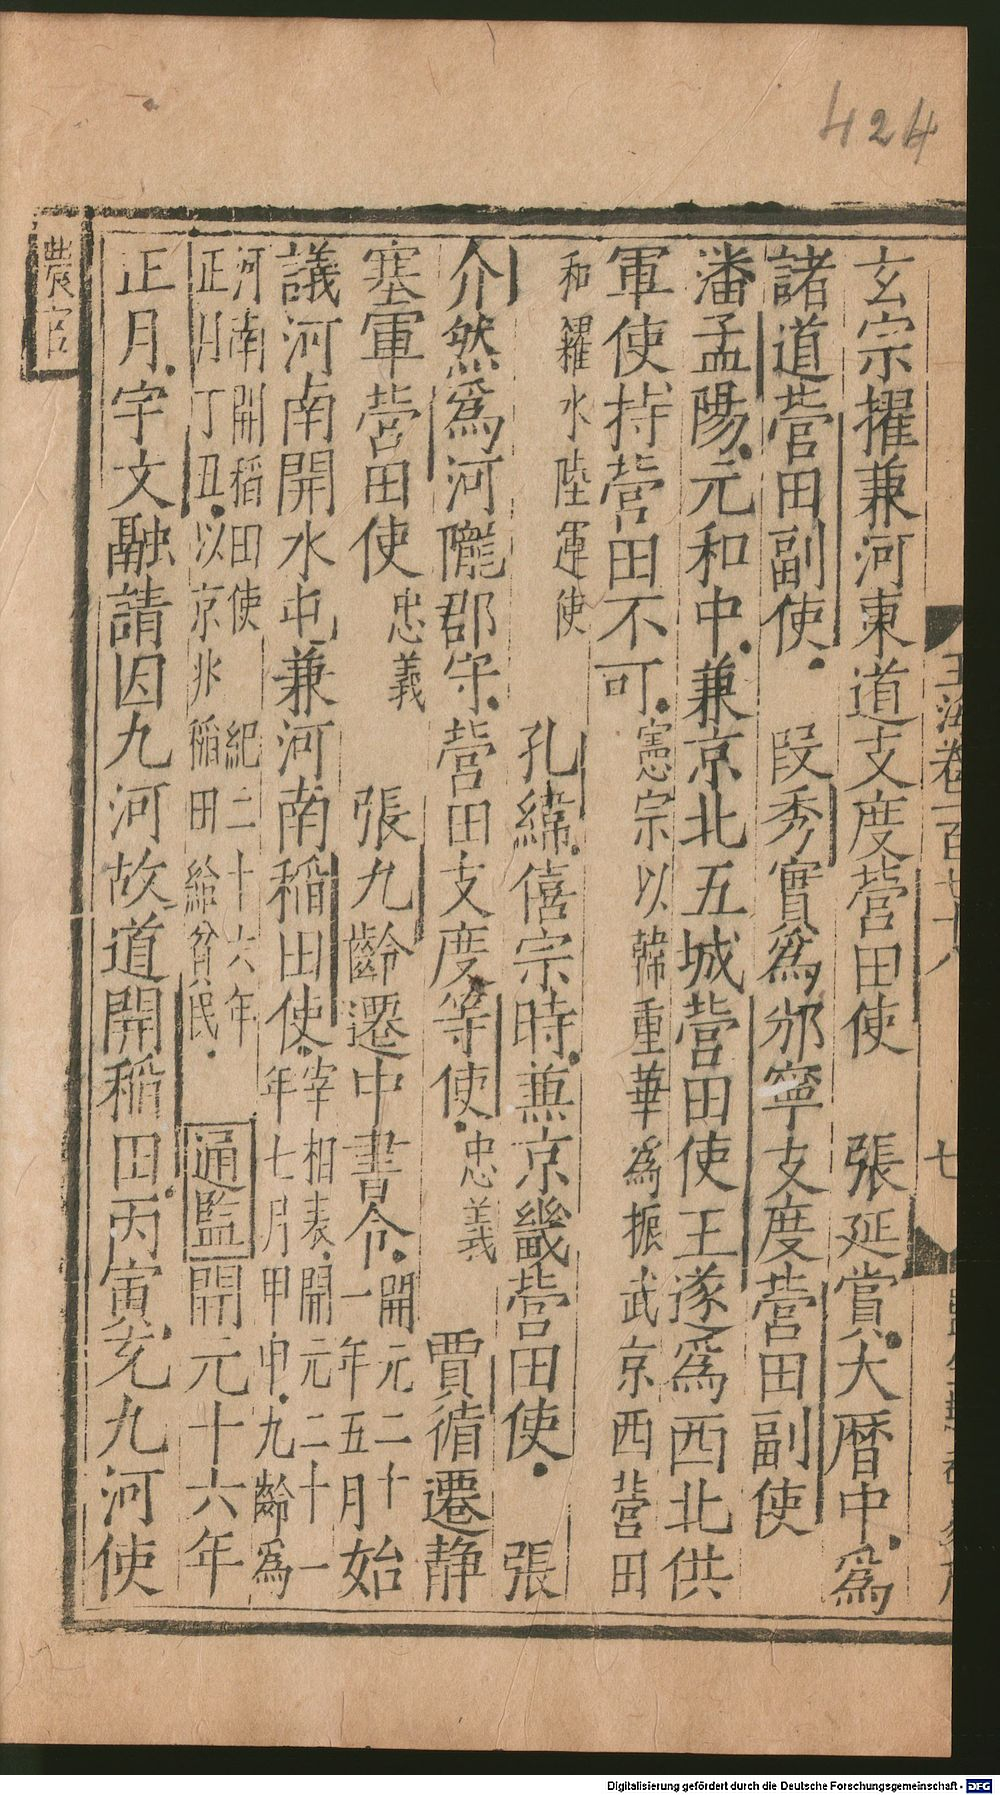 424
玉海卷一百七十八
七
玄宗擢兼河東道支度營田使　張延賞大曆中為
諸道營田副使　段秀實為邠寧支度營田副使
潘孟陽元和中兼京北五城營田使王遂為西北供
軍使持營田不可憲宗以韓重華為振武京西營田
和糴水陸運使　孔緯僖宗時兼京畿營田使　張
介然為河隴郡守營田支度等使忠義　賈循遷静
塞軍營田使忠義　張九齡遷中書令開元二十一年五月始
議河南開水屯兼河南稻田使宰相表開元二十一年七月甲申九齡為
河南開稻田使　紀二十六年正月丁丑以京兆稻田給貧民　通監開元十六年
正月宇文融請因九河故道開稻田丙寅充九河使
農官
Digitalisierung gefördert durch die Deutsche Forschungsgemeinschaft - DFG